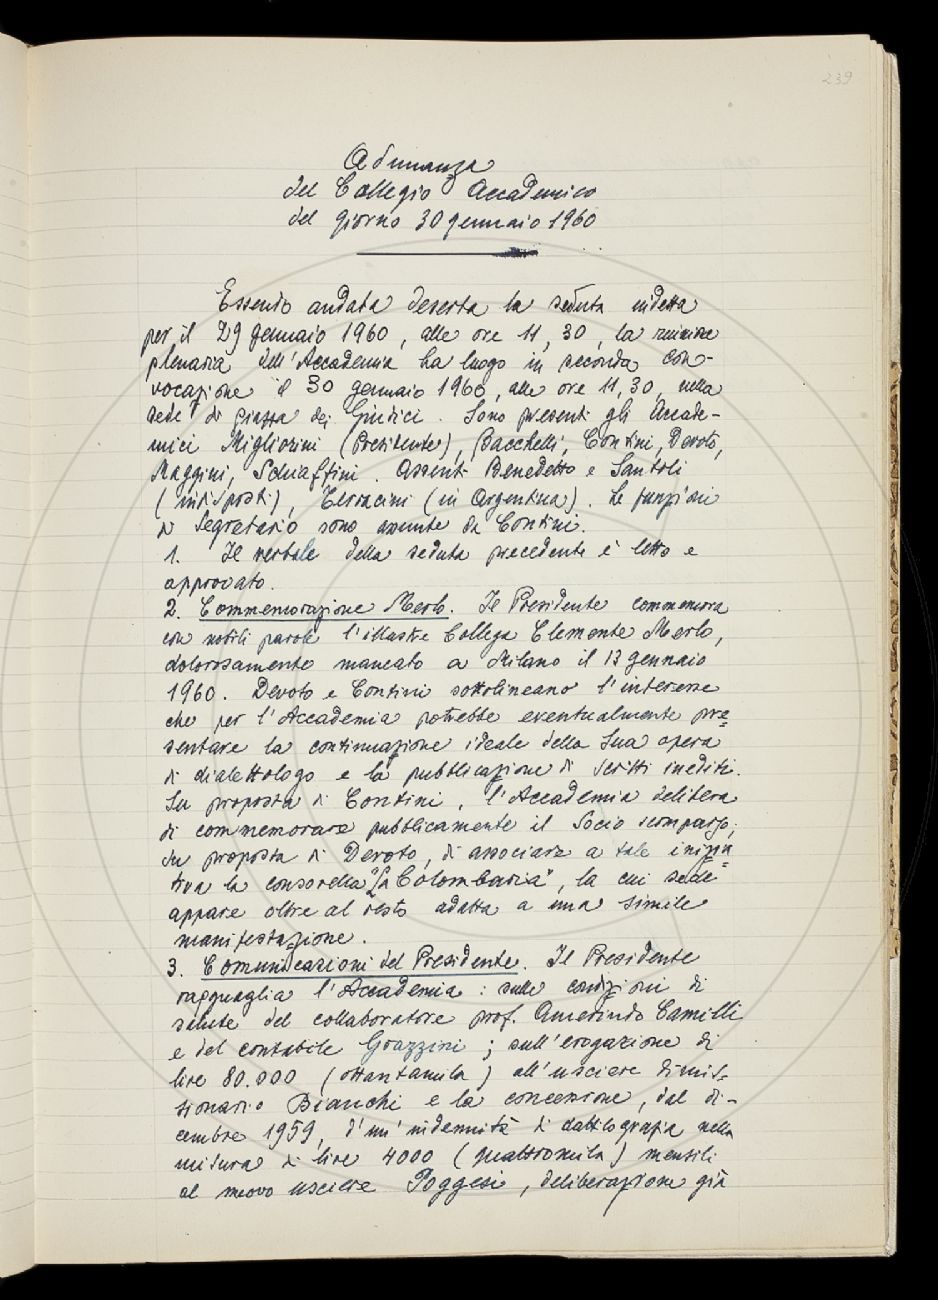 239
Adunanza
del Collegio Accademico
del giorno 30 gennaio 1960
Essendo andata deserta la seduta indetta
per il 29 gennaio 1960, alle ore 11,30, la riunione
plenaria dell'Accademia ha luogo in seconda con-
vocazione il 30 gennaio 1960, alle ore 11,30, nella
sede di piazza dei Giudici. Sono presenti gli Accade-
mici Migliorini (Presidente), Bacchelli, Contini, Devoto,
Maggini, Schiaffini. Assenti Benedetto e Santoli
(indisposti), Terracini (in Argentina). Le funzioni
di Segretario sono assunte da Contini.
1. Il verbale della seduta precedente è letto e
approvato.
2. Commemorazione Merlo. Il Presidente commemora
con nobili parole l'illustre Collega Clemente Merlo,
dolorosamente mancato a Milano il 13 gennaio
1960. Devoto e Contini sottolineano l'interesse
che per l'Accademia potrebbe eventualmente pre=
sentare la continuazione ideale della Sua opera
di dialettologo e la pubblicazione di scritti inediti.
Su proposta di Contini, l'Accademia delibera
di commemorare pubblicamente il Socio scomparso;
su proposta di Devoto, di associare a tale inizia=
tiva la consorella "La Colombaria", la cui sede
appare oltre al resto adatta a una simile
manifestazione.
3. Comunicazioni del Presidente. Il Presidente
ragguaglia l'Accademia: sulle condizioni di
salute del collaboratore prof. Amerindo Camilli
e del contabile Grazzini; sull'erogazione di
lire 80.000 (ottantamila) all'usciere dimis-
sionario Bianchi e la concessione, dal di-
cembre 1959, d'un'indennità di dattilografia nella
misura di lire 4000 (quattromila) mensili
al nuovo usciere Poggesi, deliberazione già